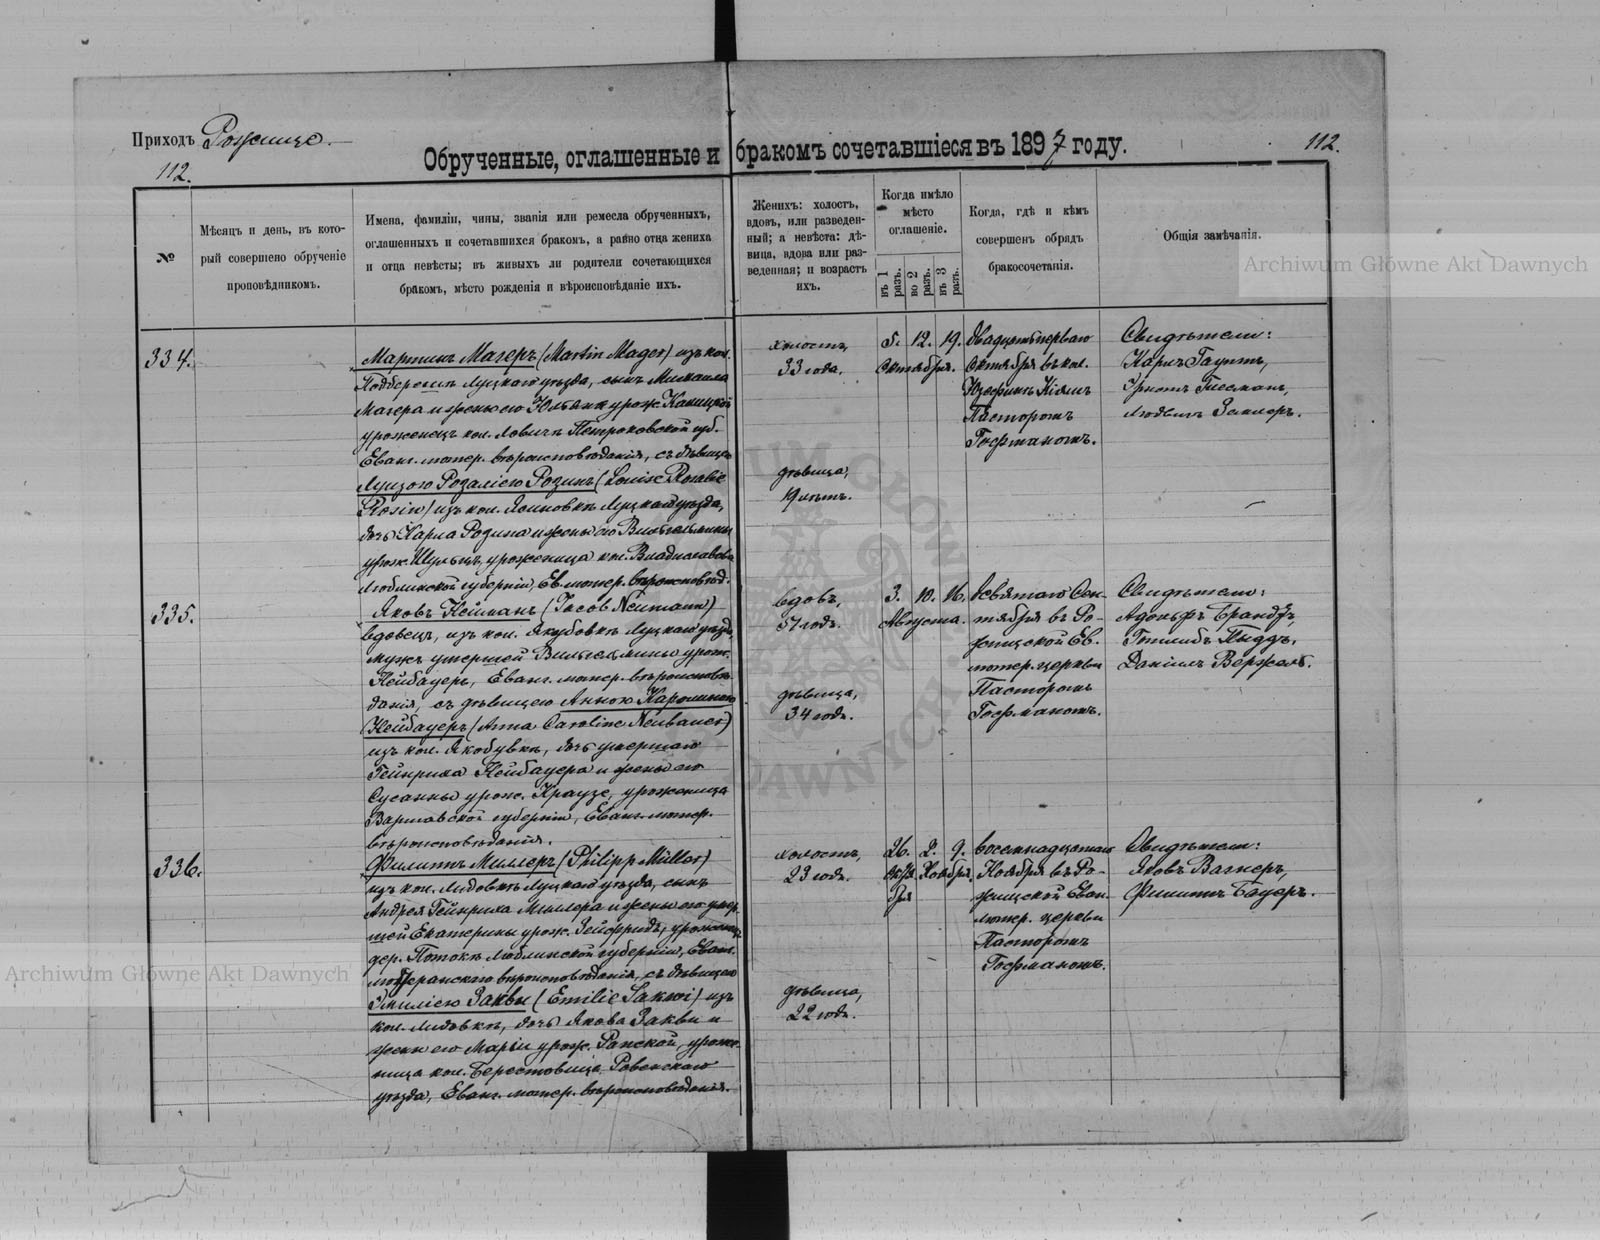 Приходъ Рожище.
112.
112.
Обрученные, оглашенные и бракомъ сочетавшіеся въ 1897 году.
№
Мѣсяцъ и день, въ кото-
рый совершено обрученіе
проповѣдникомъ.
Имена, фамиліи, чины, званія или ремесла обрученныхъ,
оглашенныхъ и сочетавшихся бракомъ, а равно отца жениха
и отца невѣсты; въ живыхъ ли родители сочетающихся
бракомъ, мѣсто рожденія и вѣроисповѣданіе ихъ.
Женихъ: холостъ,
вдовъ, или разведен-
ный; а невѣста: дѣ-
вица, вдова или раз-
веденная; и возрастъ
ихъ.
Когда имѣло
мѣсто
оглашеніе.
въ 1 разъ.
во 2 разъ.
въ 3 разъ.
Когда, гдѣ и кѣмъ
совершенъ обрядъ
бракосочетанія.
Общія замѣчанія.
Archiwum Główne Akt Dawnych
334.
Мартинъ Магеръ (Martin Mager) изъ кол.
Луцкаго уѣзда, сынъ Михаила
Магера и жены его урож.
уроженецъ кол. Ловичъ Петроковской губ.
Еванг. лютер. вѣроисповѣданія, съ дѣвицею
Луизою Розаліею Розинъ (Louise Rosalie
Rosin) изъ кол. Яновкѣ Луцкаго уѣзда,
дочь Карла Розина и жены его Вильгельмины
урож. Шульцъ, уроженица кол.
Люблинской губерніи, Ев. лютер. вѣроисповѣд.
холостъ,
33 года.
дѣвица,
19 лѣтъ.
5. 12. 19.
Октября.
Двадцать перваго
Октября въ кол.
Юзефинъ Кіямъ
Пасторомъ
Гофманомъ.
Свидѣтели:
Карлъ Гауптъ,
Эрнстъ Тиссманъ,
Людвигъ
335.
Яковъ Нейманъ (Jacob Neumann)
вдовецъ, изъ кол. Якубовкѣ Луцкаго уѣзда,
мужъ умершей Вильгельмины урож.
Нейбауеръ, Еванг. лютер. вѣроисповѣ-
данія, съ дѣвицею Анною Каролиною
Нейбауеръ (Anna Caroline Neubauer)
изъ кол. Якобувкѣ, дочь умершаго
Гейнриха Нейбауера и жены его
Сусанны урож. Краузе, уроженица
Варшавской губерніи, Еванг. лютер.
вѣроисповѣданія.
вдовъ,
51 годъ.
дѣвица,
34 годъ.
3. 10. 16.
Августа.
Девятаго Сен-
тября въ Ро-
жищской Ев.
лютер. церкви
Пасторомъ
Гофманомъ.
Свидѣтели:
Адольфъ Брандтъ,
Готлибъ
Даніилъ
336.
Филиппъ Миллеръ (Philipp Müller)
изъ кол. Лидовкѣ Луцкаго уѣзда, сынъ
Андрея Гейнриха Миллера и жены его умер-
шей Екатерины урож. Зейфридъ, уроженецъ
дер. Потокъ Люблинской губерніи, Еванг.
лютеранскаго вѣроисповѣданія, съ дѣвицею
Эмиліею Закви (Emilie Sakwi) изъ
кол. Лидовкѣ, дочь Якова Закви и
жены его Маріи урож. Рапской, уроже-
ница кол. Берестовица Ровенскаго
уѣзда, Еванг. лютер. вѣроисповѣданія.
холостъ,
23 годъ.
дѣвица,
22 годъ.
26. 2. 9.
Октя- Ноября.
бря
Восемнадцатаго
Ноября въ Ро-
жищской Еван.
лютер. церкви
Пасторомъ
Гофманомъ.
Свидѣтели:
Яковъ Вагнеръ,
Филиппъ Бауеръ.
Archiwum Główne Akt Dawnych